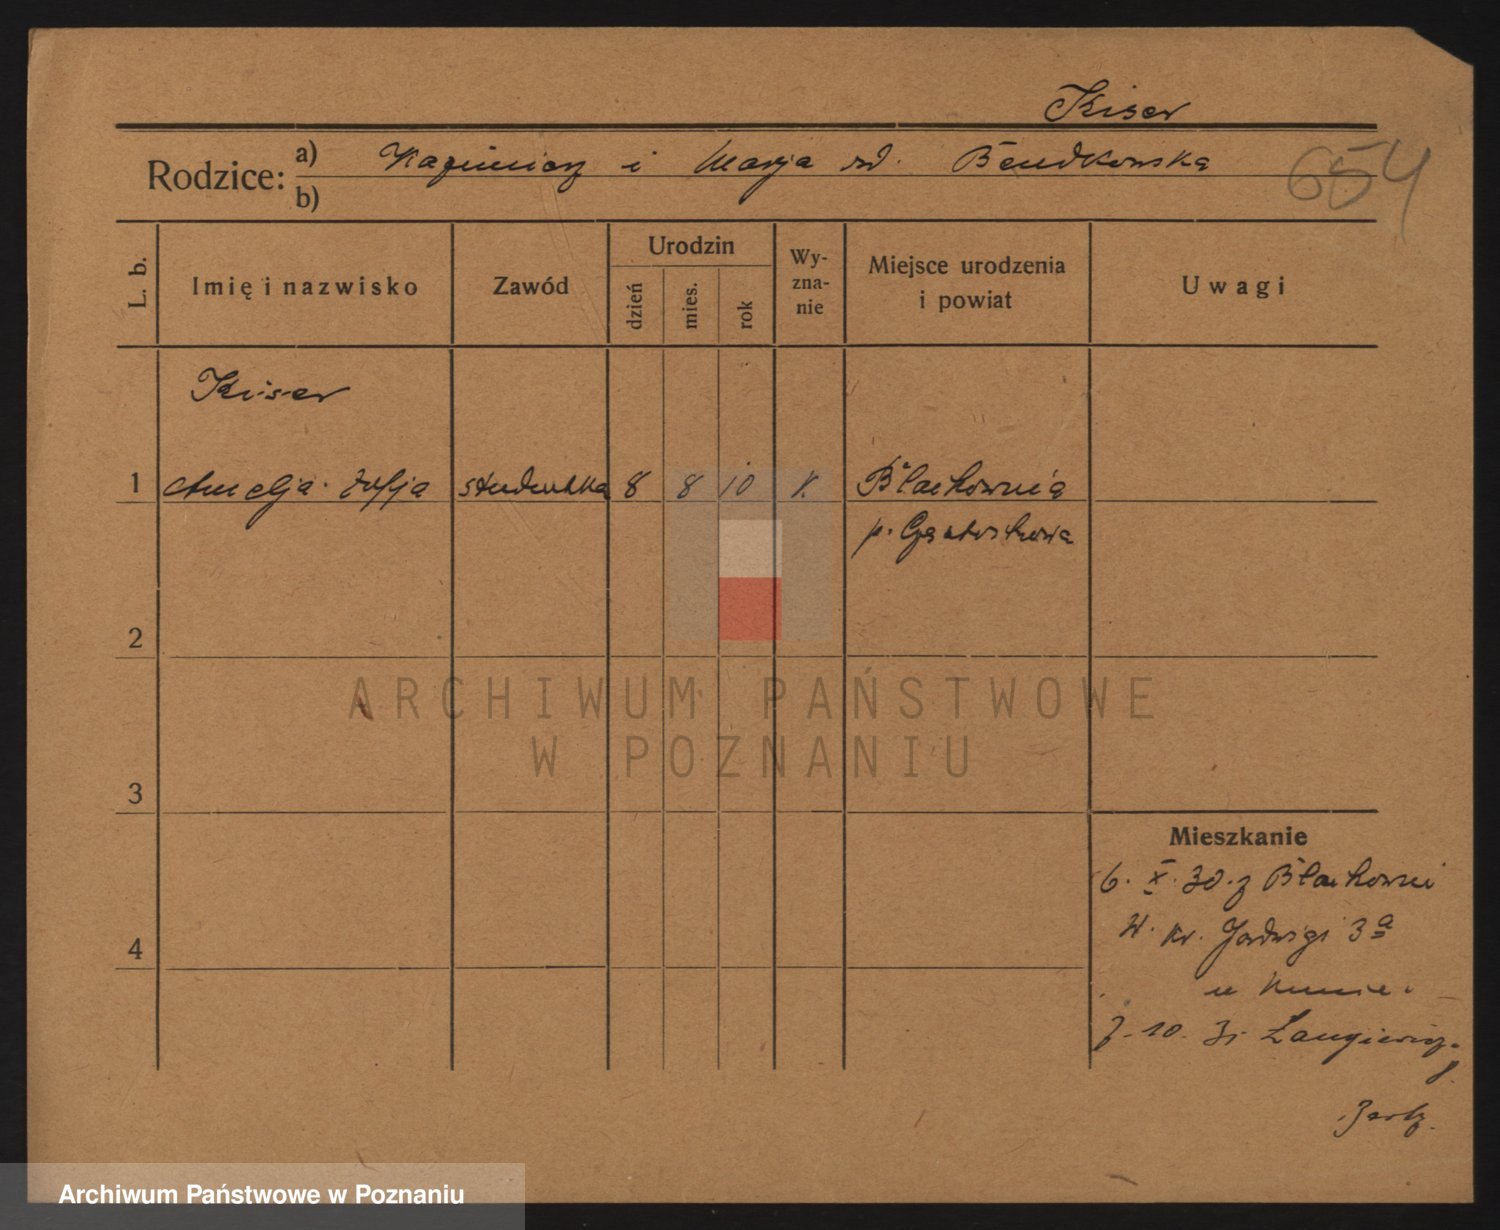 Kiser
Rodzice: a) Kazimierz i Marja rd. Bendkowska
b)
654
L. b. Imię i nazwisko Zawód Urodzin dzień mies. rok Wyznanie Miejsce urodzenia i powiat Uwagi
Kiser
1 Amelja Zofja studentka 8 8 10 k. Blachownia
p. Częstochowa
2
ARCHIWUM PAŃSTWOWE
W POZNANIU
3
Mieszkanie
6. X. 30. z Blachowni
4
W. Kr. Jadwigi 3a
u
7. 10. 31 Langiewicza
Archiwum Państwowe w Poznaniu